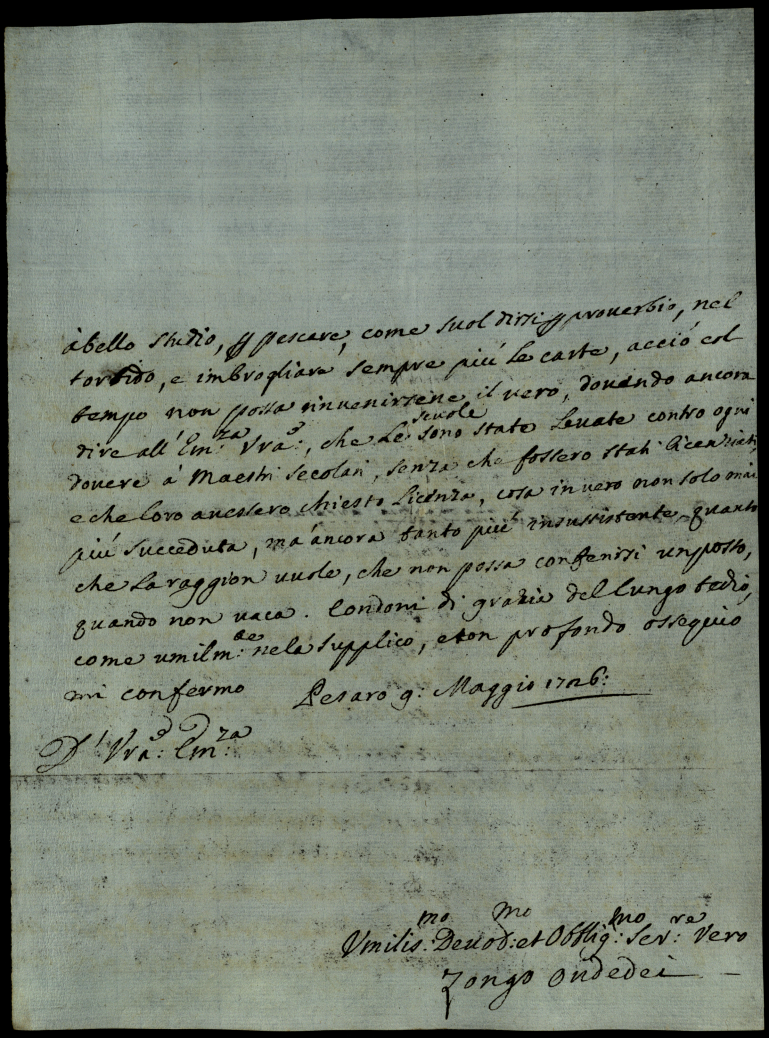 à bello studio, p pescare, come suol dirsi p prouerbio, nel
torbido, e imbrogliare sempre piú le carte, acció col
tempo non possa rinuenirsene il vero, douendo ancora
dire all' Em:za Vra:, che le scuole sono state leuate contro ogni
douere á Maestri secolari, senza che fossero stati licenziati,
e che loro auessero chiesto licenza, cosa in uero non solo mai
piú succeduta, ma áncora tanto piú insussistente quanto
che la raggion uuole, che non possa conferirsi un posto,
quando non uaca. Condoni di grazia del lungo tedio,
come umilm:te nela supplico, e con profondo ossequio
mi confermo Pesaro 9: Maggio 1726:
D' Vra: Em:za
Vmilis:mo Deuod:mo et Obblig:mo Ser:re Vero
Zongo Ondedei